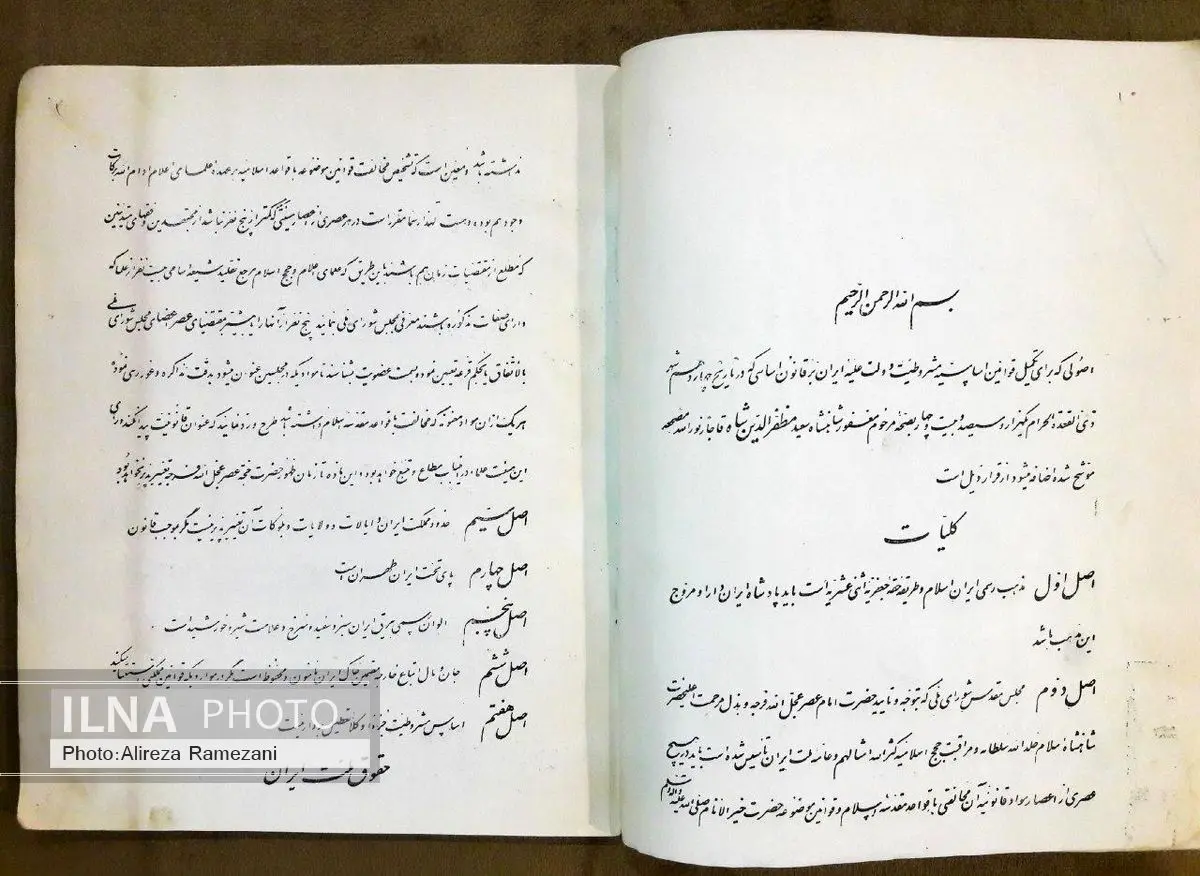 بسم الله الرحمن الرحیم
اصولی که برای تکمیل قوانین اساسیه مشروطیت دولت علیه ایران بر قانون اساسی که در تاریخ چهاردهم شهر
ذی القعدة الحرام یکهزار و سیصد و بیست و چهار بصحه مرحوم مغفور شاهنشاه سعید مظفرالدین شاه قاجار نورالله مضجعه
موشح شده اضافه میشود از قرار ذیل است
کلیات
اصل اول مذهب رسمی ایران اسلام و طریقه حقه جعفریه اثنی عشریه است باید پادشاه ایران دارا و مروج
این مذهب باشد
اصل دوم مجلس مقدس شورای ملی که بتوجه و تایید حضرت امام عصر عجل الله فرجه و بذل مرحمت اعلیحضرت
شاهنشاه اسلام خلد الله سلطانه و مراقبت حجج اسلامیه کثر الله امثالهم و عامه ملت ایران تاسیس شده است باید در هیچ
عصری از اعصار مواد قانونیه آن مخالفتی با قواعد مقدسه اسلام و قوانین موضوعه حضرت خیر الانام صلی الله علیه و اله و سلم
نداشته باشد و معین است که تشخیص مخالفت قوانین موضوعه با قواعد اسلامیه بر عهده علمای اعلام ادام الله برکات
وجودهم بوده و هست لهذا رسما مقرر است در هر عصری از اعصار هیئتی که کمتر از پنج نفر نباشد از مجتهدین و فقهای متدینین
که مطلع از مقتضیات زمان هم باشند باین طریق که علمای اعلام و حجج اسلام مرجع تقلید شیعه اسامی بیست نفر از علما که
دارای صفات مذکوره باشند معرفی بمجلس شورای ملی بنمایند پنج نفر از آنها را یا بیشتر بمقتضای عصر اعضای مجلس شورای ملی
بالاتفاق یا بحکم قرعه تعیین نموده بسمت عضویت بشناسند تا موادیکه در مجلسین عنوان میشود بدقت مذاکره و غوررسی نموده
هر یک از ان مواد معنونه که مخالفت با قواعد مقدسه اسلام داشته باشد طرح و رد نمایند که عنوان قانونیت پیدا نکند و رای
این هیئت علماء در این باب مطاع و متبع خواهد بود و این ماده تا زمان ظهور حضرت حجة عصر عجل الله فرجه تغییر پذیر نخواهد بود
اصل سیم حدود مملکت ایران و ایالات و ولایات و بلوکات آن تغییر پذیر نیست مگر بموجب قانون
اصل چهارم پای تخت ایران طهران است
اصل پنجم الوان رسمی بیرق ایران سبز و سفید و سرخ و علامت شیر و خورشید است
اصل ششم جان و مال اتباع خارجه مقیمین خاک ایران مامون و محفوظ است مگر در مواردیکه قوانین مملکتی استثنا میکند
اصل هفتم اساس مشروطیت جزأ و کلا تعطیل بردار نیست
حقوق ملت ایران
ILNA PHOTO
Photo:Alireza Ramezani